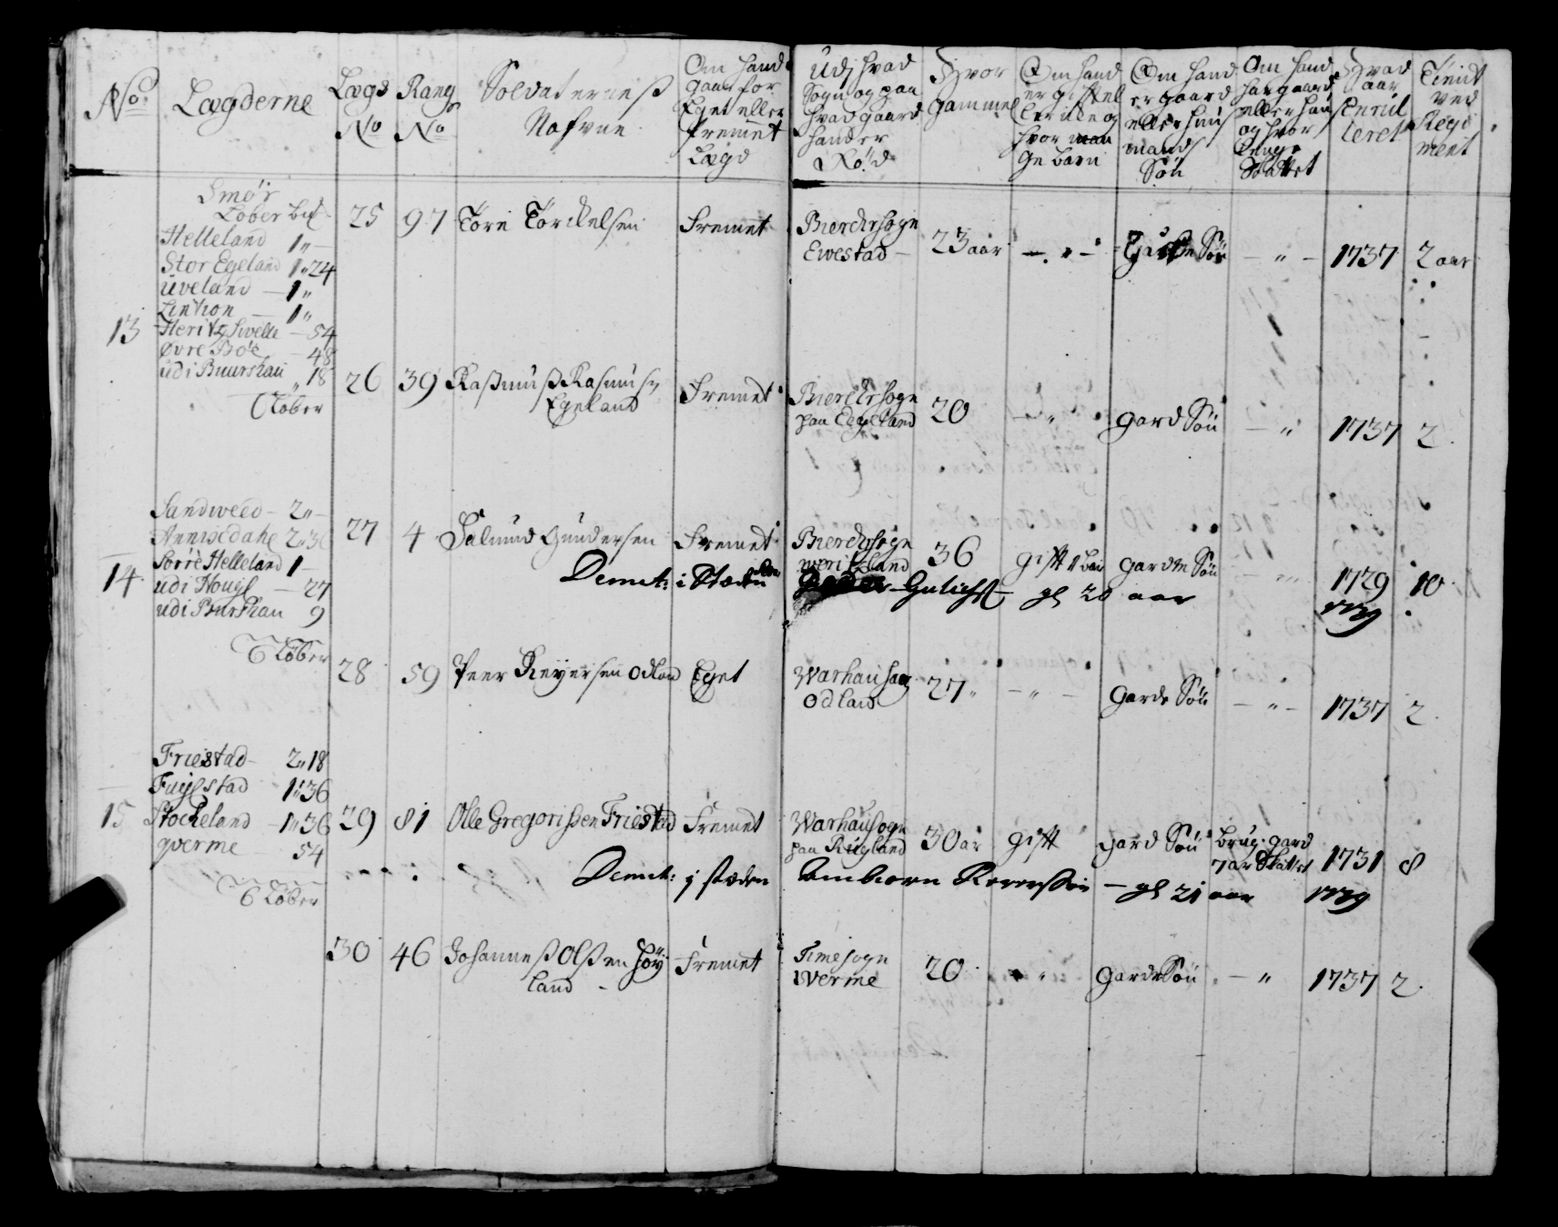 No: Lægderne Lægs No Rang No Soldaternes Nafvne
Om hand gaar for Eget eller fremmet Lægd
Ud hvad Sogn og paa hvad gaard hand er Kød
Hvor gammel
Om hand er giftet eller ei og hvor mange barn
Om hand er gaard eller huus mands Søn
Om hand har gaard eller huus og hvor lenge Skattet
Hvad aar Enrulleret
Tient ved Regiment
Smør
Løber bud
Helleland 1 „ —
Stor Egeland 1 „ 24
Uveland — 1 „
— 1 „
— 54
Øvre Boe — 48
udi Buurshau „ 18
6 Løber
13
25 97 Tore Torckelsen fremet Bierckesogn Ewestad — 23 aar — „ — Garde Søn — „ — 1737 2 aar
26 39 Rasmus Rasmus: Egeland Fremet Bierckesogn paa Egeland 20 — „ gard Søn — „ 1737 2
Sandweed — 2 „ —
Annisedahl 2 „ 36
Sørre Helleland 1 —
udi Hougs — 27
udi Burshau 9
6 Løber
14
27 4 Salmund Gundersen Fremet Bierckesogn 36 gift 1 bar garde Søn — „ 1729 10
Dimit: i Steden — gl 20 aar 1739
28 59 Peer Reyersen Odland Eget Warhausogn Odland 27 „ — „ — garde Søn — „ — 1737 2
Friestad — 2 „ 18
Fuglestad 1 „ 36
Stockeland — 1 „ 36
qverme 54
6 Løber
15
29 81 Olle Gregorissen Friestad Fremet Warhausogn paa Rugland 30 ar gift gard Søn brug: gard 7 ar Skattet 1731 8
Dimit: j steden Reierssøn — gl 21 aar 1739
30 46 Johannes Olssen Høyland — Fremet Time sogn Werme 20 „ garde Søn — „ 1737 2.